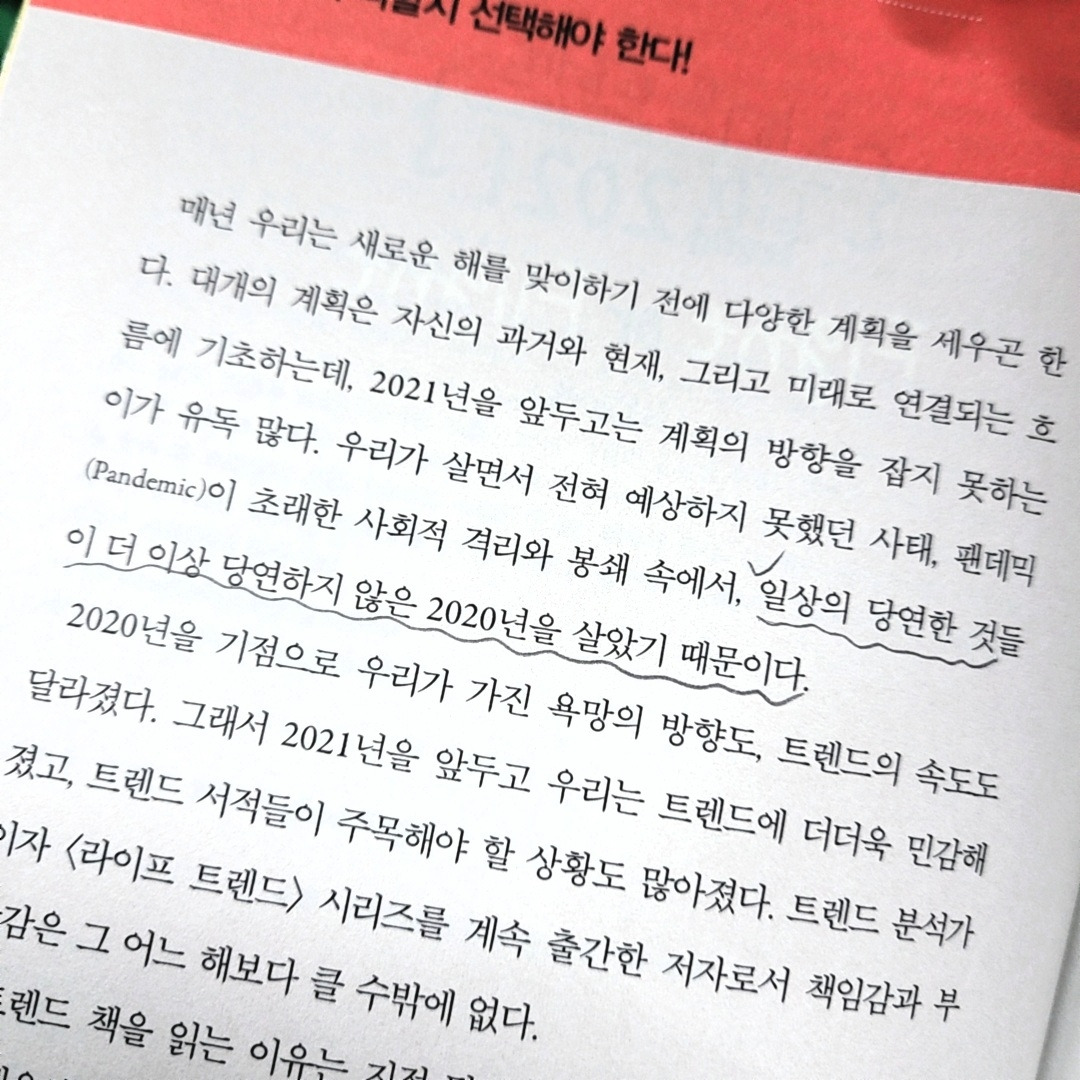 선택해야 한다!
매년 우리는 새로운 해를 맞이하기 전에 다양한 계획을 세우곤 한
다. 대개의 계획은 자신의 과거와 현재, 그리고 미래로 연결되는 흐
름에 기초하는데, 2021년을 앞두고는 계획의 방향을 잡지 못하는
이가 유독 많다. 우리가 살면서 전혀 예상하지 못했던 사태, 팬데믹
(Pandemic)이 초래한 사회적 격리와 봉쇄 속에서, 일상의 당연한 것들
이 더 이상 당연하지 않은 2020년을 살았기 때문이다.
2020년을 기점으로 우리가 가진 욕망의 방향도, 트렌드의 속도도
달라졌다. 그래서 2021년을 앞두고 우리는 트렌드에 더더욱 민감해
졌고, 트렌드 서적들이 주목해야 할 상황도 많아졌다. 트렌드 분석가
이자 〈라이프 트렌드〉 시리즈를 계속 출간한 저자로서 책임감과 부
감은 그 어느 해보다 클 수밖에 없다.
트렌드 책을 읽는 이유는